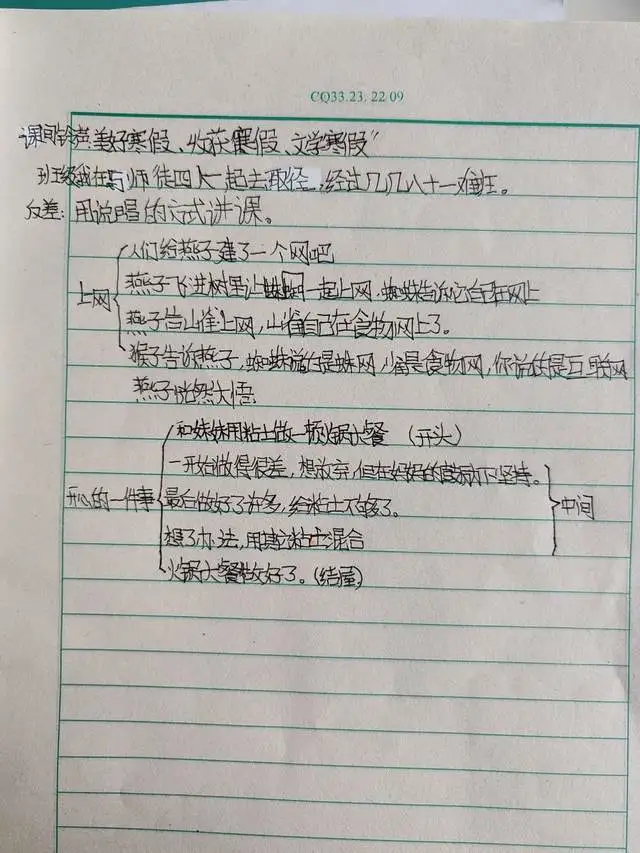 CQ33.23. 22 09
课间铃声:美好寒假、收获寒假、文学寒假”
班级:我在与师徒四人一起去取经,经过几几八十一难班。
反差:用说唱的方式讲课。
人们给燕子建了一个网吧
燕子飞进树里让蜘蛛一起上网,蜘蛛告诉它自己在网上
上网
燕子告山雀上网,山雀自己在食物网上了。
猴子告诉燕子,蜘蛛说的是蛛网,雀是食物网,你说的是互联网
燕子恍然大悟
和妹妹用粘土做一顿火锅大餐 (开头)
一开始做得很差,想放弃,但在妈妈的鼓励下坚持。
开心的一件事 最后做好了许多,结粘土不够了。 中间
想了办法,用其粘土混合
火锅大餐做好了。(结尾)